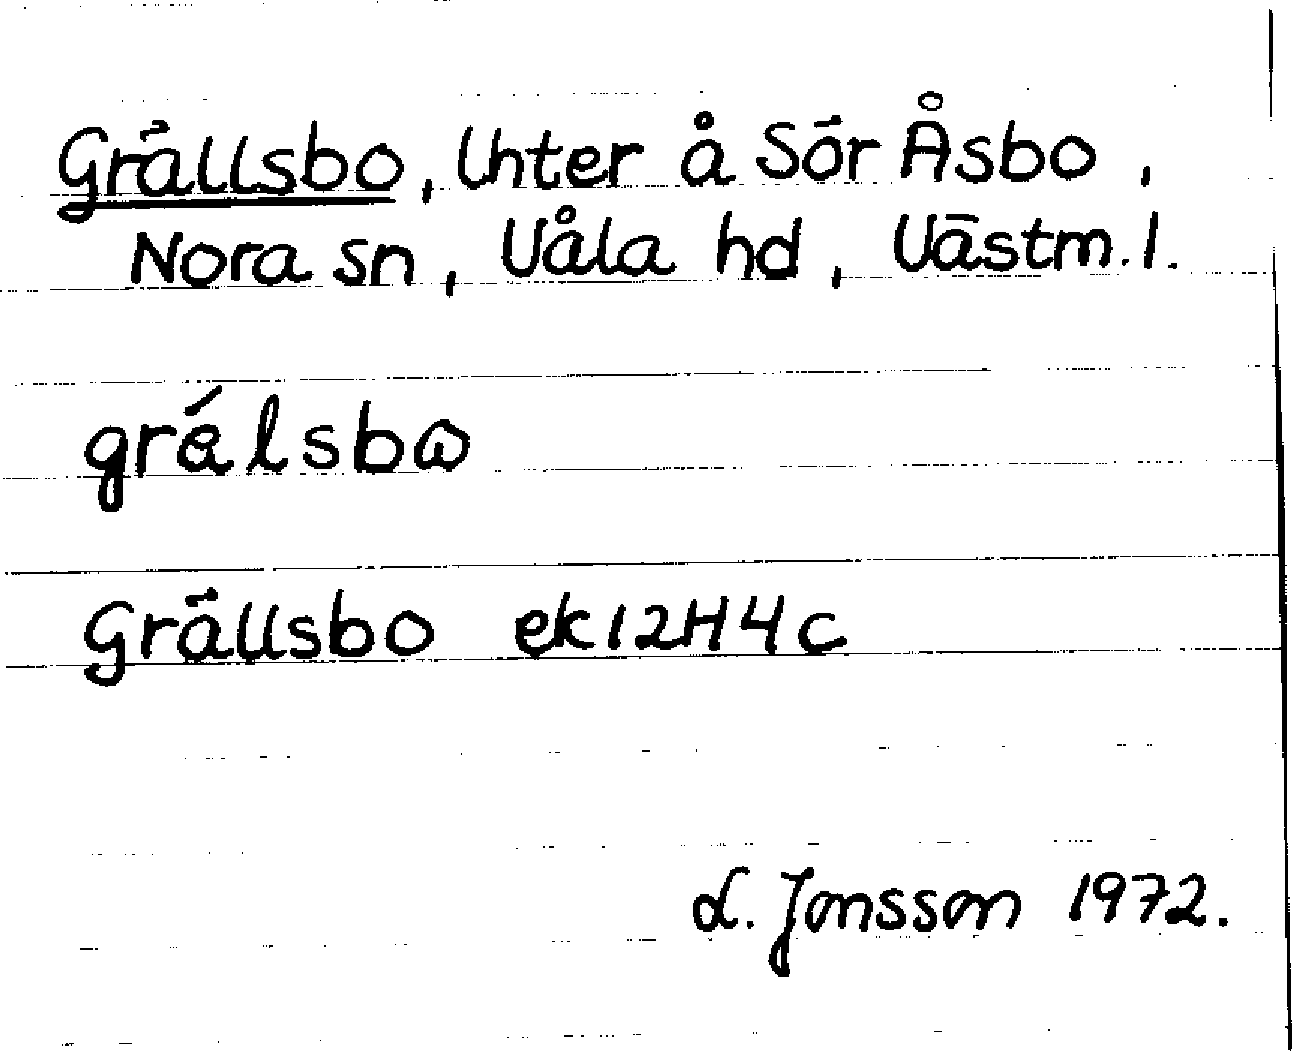 Grällsbo, lhter å Sör Åsbo,
Nora sn, Våla hd, Västm. l.
grä́lsbω
Grällsbo ek 12H4c
L. Jonsson 1972.